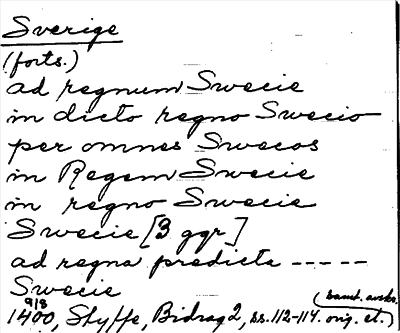 Sverige
(forts.)
ad regnum Swecie
in dicto regno Swecio
per omnes Swecos
in Regem Swecie
in regno Swecie
Swecie [3 ggr]
ad regna predicta -----
Swecie
(samt. avskr.
1400 9/8, Styffe, Bidrag 2, ss. 112-114. orig. et.)